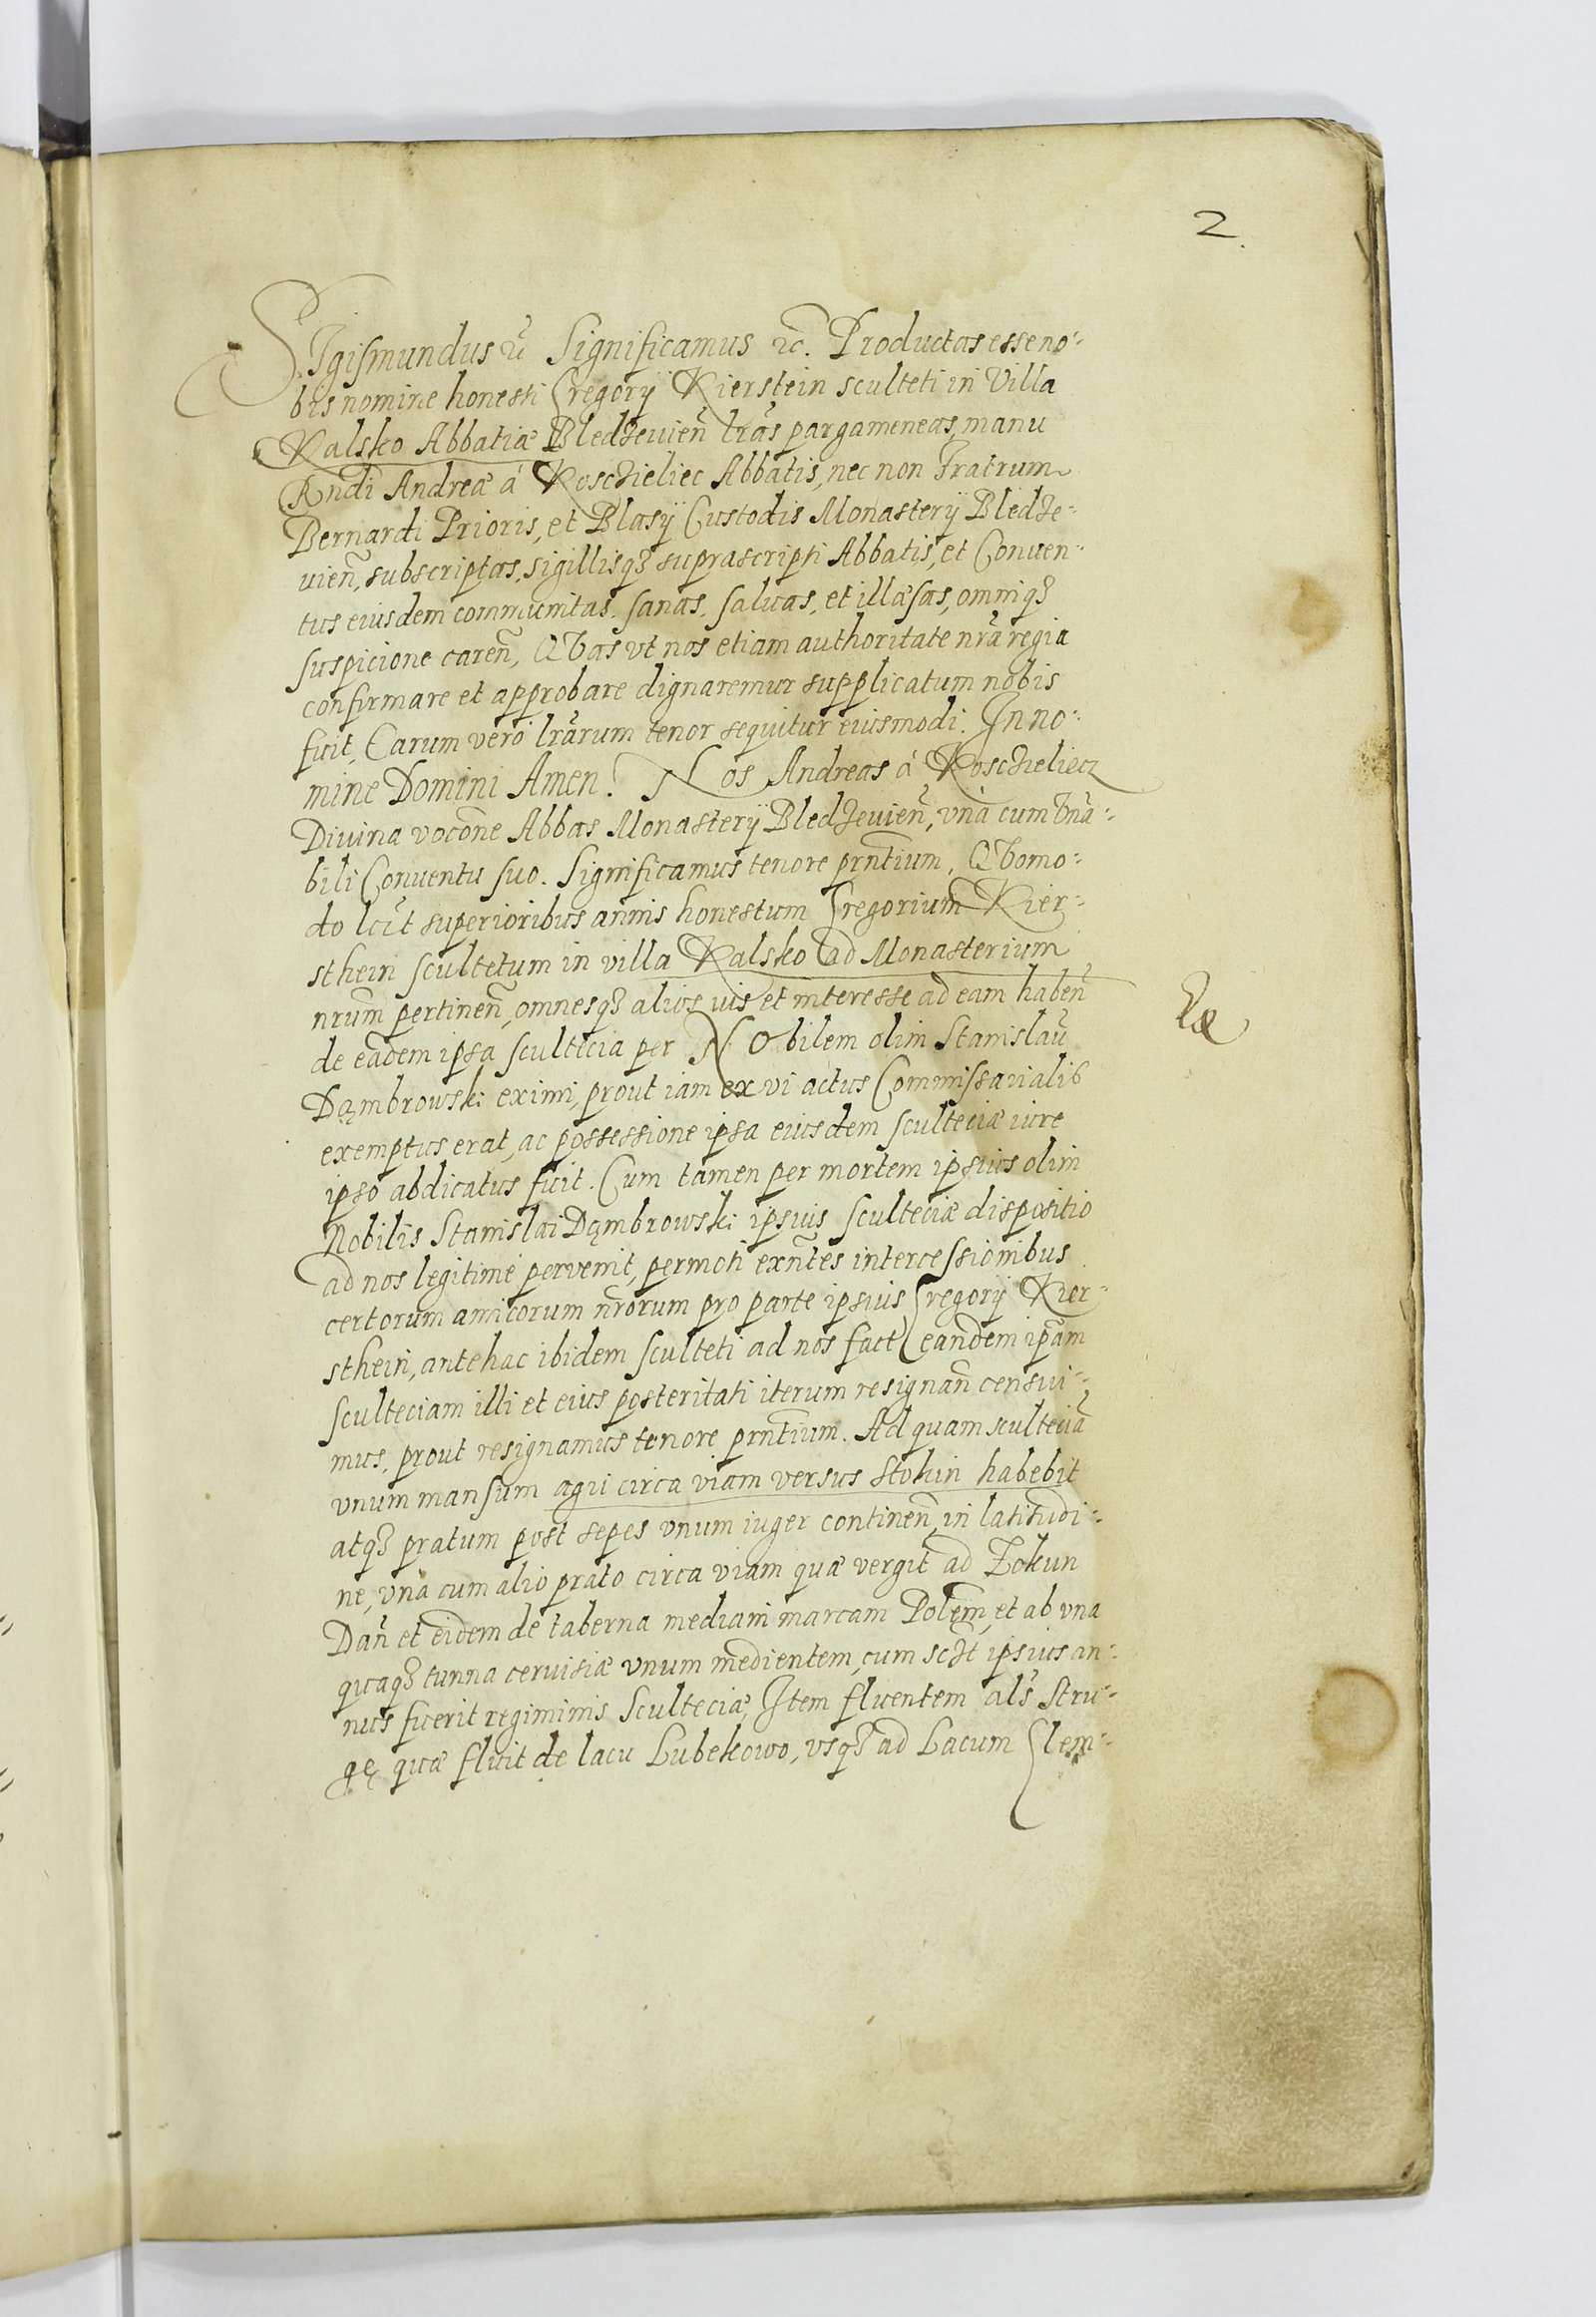 2.
SIgismundus ꝛc̃ Significamus ꝛc. Productas esse no⸗
bis nomine honesti Gregorÿ Kierstein sculteti in Villa
Kalsko Abbatiæ Bledzeuien̄ lr̄as pargameneas, manu
Rn̄di Andreæ á Koschieliec Abbatis, nec non Fratrum
Bernardi Prioris, et Blasÿ Custodis Monasterÿ Bledze⸗
uien̄, subscriptas, sigillisqꝫ suprascripti Abbatis, et Conuen⸗
tus eiusdem communitas. sanas, saluas, et illæsas, omniqꝫ
suspicione caren̄, Quas vt nos etiam authoritate nr̄a regia
confirmare et approbare dignaremur supplicatum nobis
fuit, Earum verò lr̄arum tenor sequitur eiusmodi. In no⸗
mine Domini Amen. Nos Andreas á Koschieliecz
Diuina voco͞ne Abbas Monasterÿ Bledzeuien̄, vnà cum Vn̄a⸗
bili Conuentu suo. Significamus tenore prn̄tium, Quomo⸗
do lc̄it superioribus annis honestum Gregorium Kier⸗
sthein scultetum in villa Kalsko ad Monasterium
nr̄um pertinen̄, omnesqꝫ alios ius et interesse ad eam haben̄
de eadem ipsa scultecia per NObilem olim Stanislau̅
Dąmbrowski eximi, prout iam ex vi actus Commissarialis
exemptus erat, ac possessione ipsa eiusdem sculteciæ iure
ipso abdicatus fuit. Cum tamen per mortem ipsius olim
Nobilis Stanislai Dąmbrowski ipsius sculteciæ dispositio
ad nos legitimé pervenit, permoti exn̄tes intercessionibus
certorum amicorum nr̄orum pro parte ipsius Gregorÿ Kier⸗
sthein, antehac ibidem sculteti ad nos fact eandem ip̄am
sculteciam illi et eius posteritati iterum resignan̄ censui⸗
mus, prout resignamus tenore prn̄tium. Ad quam sculteciā
vnum mansum agri circa viam versus Stokin habebit
atqꝫ pratum post sepes vnum iuger continen̄, in latitudi⸗
ne, vnà cum alio prato circa viam quæ vergit ad Zokun
Dan̄ et eidem de taberna mediam marcam Polęm̄, et ab vna
quaqꝫ tunna ceruisiæ vnum medientem, cum scz̄t ipsius an⸗
nus fuerit regiminis Sculteciæ, Item fluentem al̄s Stru⸗
gę quæ fluit de lacu Lubekowo, vsqꝫ ad Lacum Glem⸗